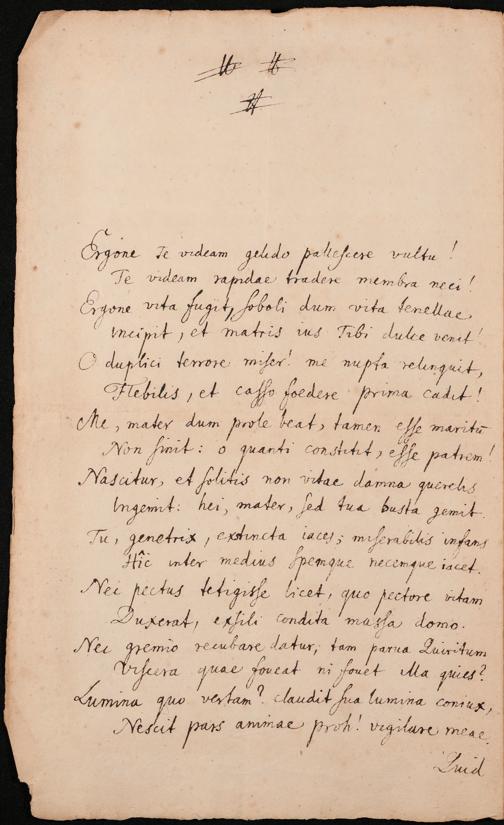 Ergone Te videam gelido pallescere vultu!
Te videam rapidae tradere membra neci!
Ergone vita fugit, soboli dum vita tenellae
Incipit, et matris ius Tibi dulce venit!
O duplici terrore miser! me nupta relinquit,
Flebilis, et casso foedere prima cadit!
Me, mater dum prole beat, tamen esse maritū
Non sinit: o quanti constitit, esse patrem!
Nascitur, et solitis non vitae damna querelis
Ingemit: hei, mater, sed tua busta gemit.
Tu, genetrix, extincta iaces; miserabilis infans
Hîc inter medius spemque necemque iacet.
Nec pectus tetigisse licet, quo pectore vitam
Duxerat, exsili condita massa domo.
Nec gremio recubare datur; tam parva Quiritum
Viscera quae foveat ni fouet illa quies?
Lumina quo vertam? claudit sua lumina coniux,
Nescit pars animae proh! vigilare meae.
Quid